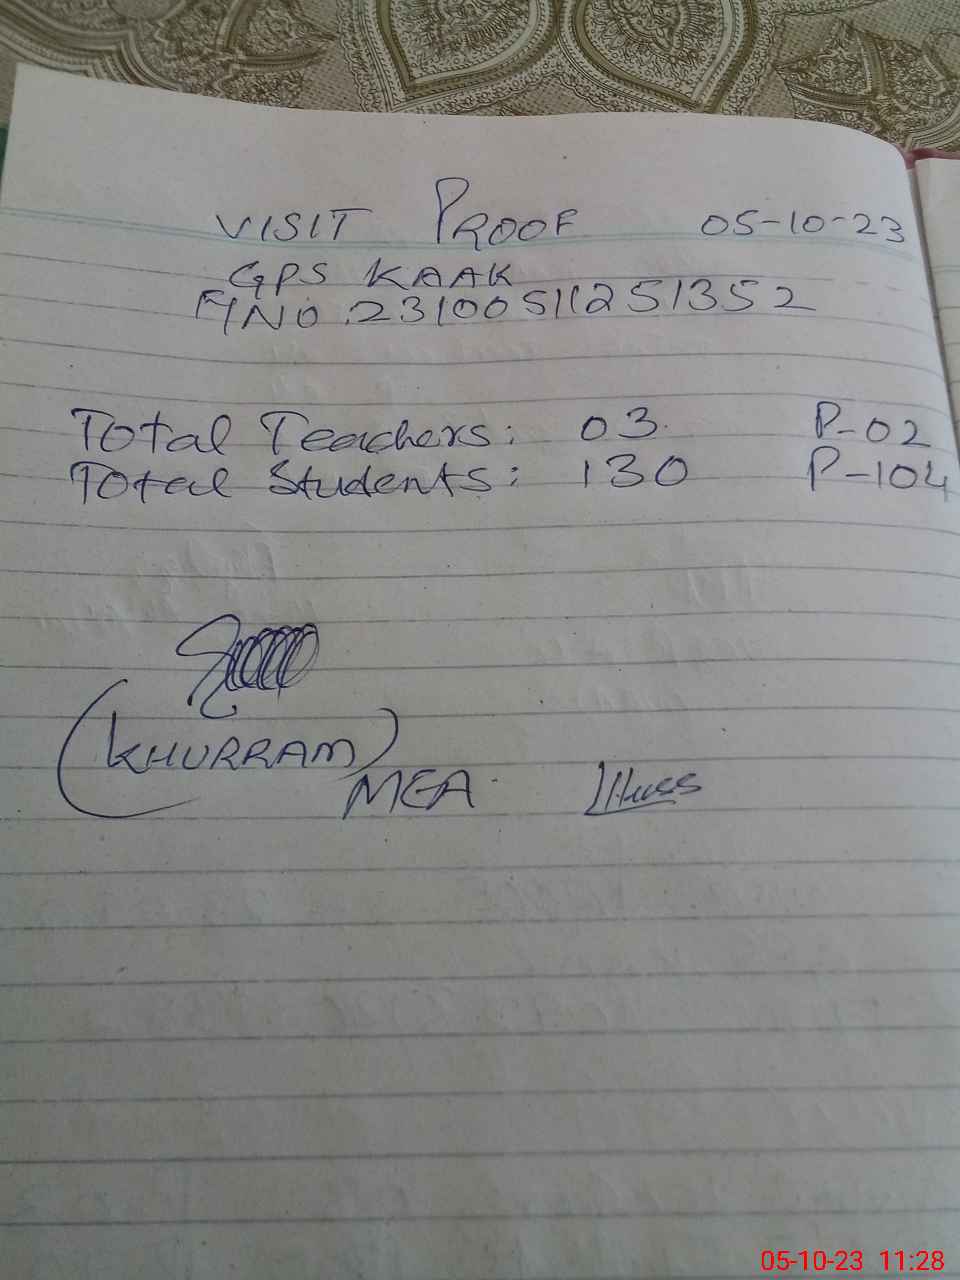 VISIT PROOF 05-10-23
GPS KAAK
F/NO. 231005112 51352
Total Teachers: 03. P-02
Total Students: 130 P-104
(KHURRAM)
MEA
05-10-23 11:28